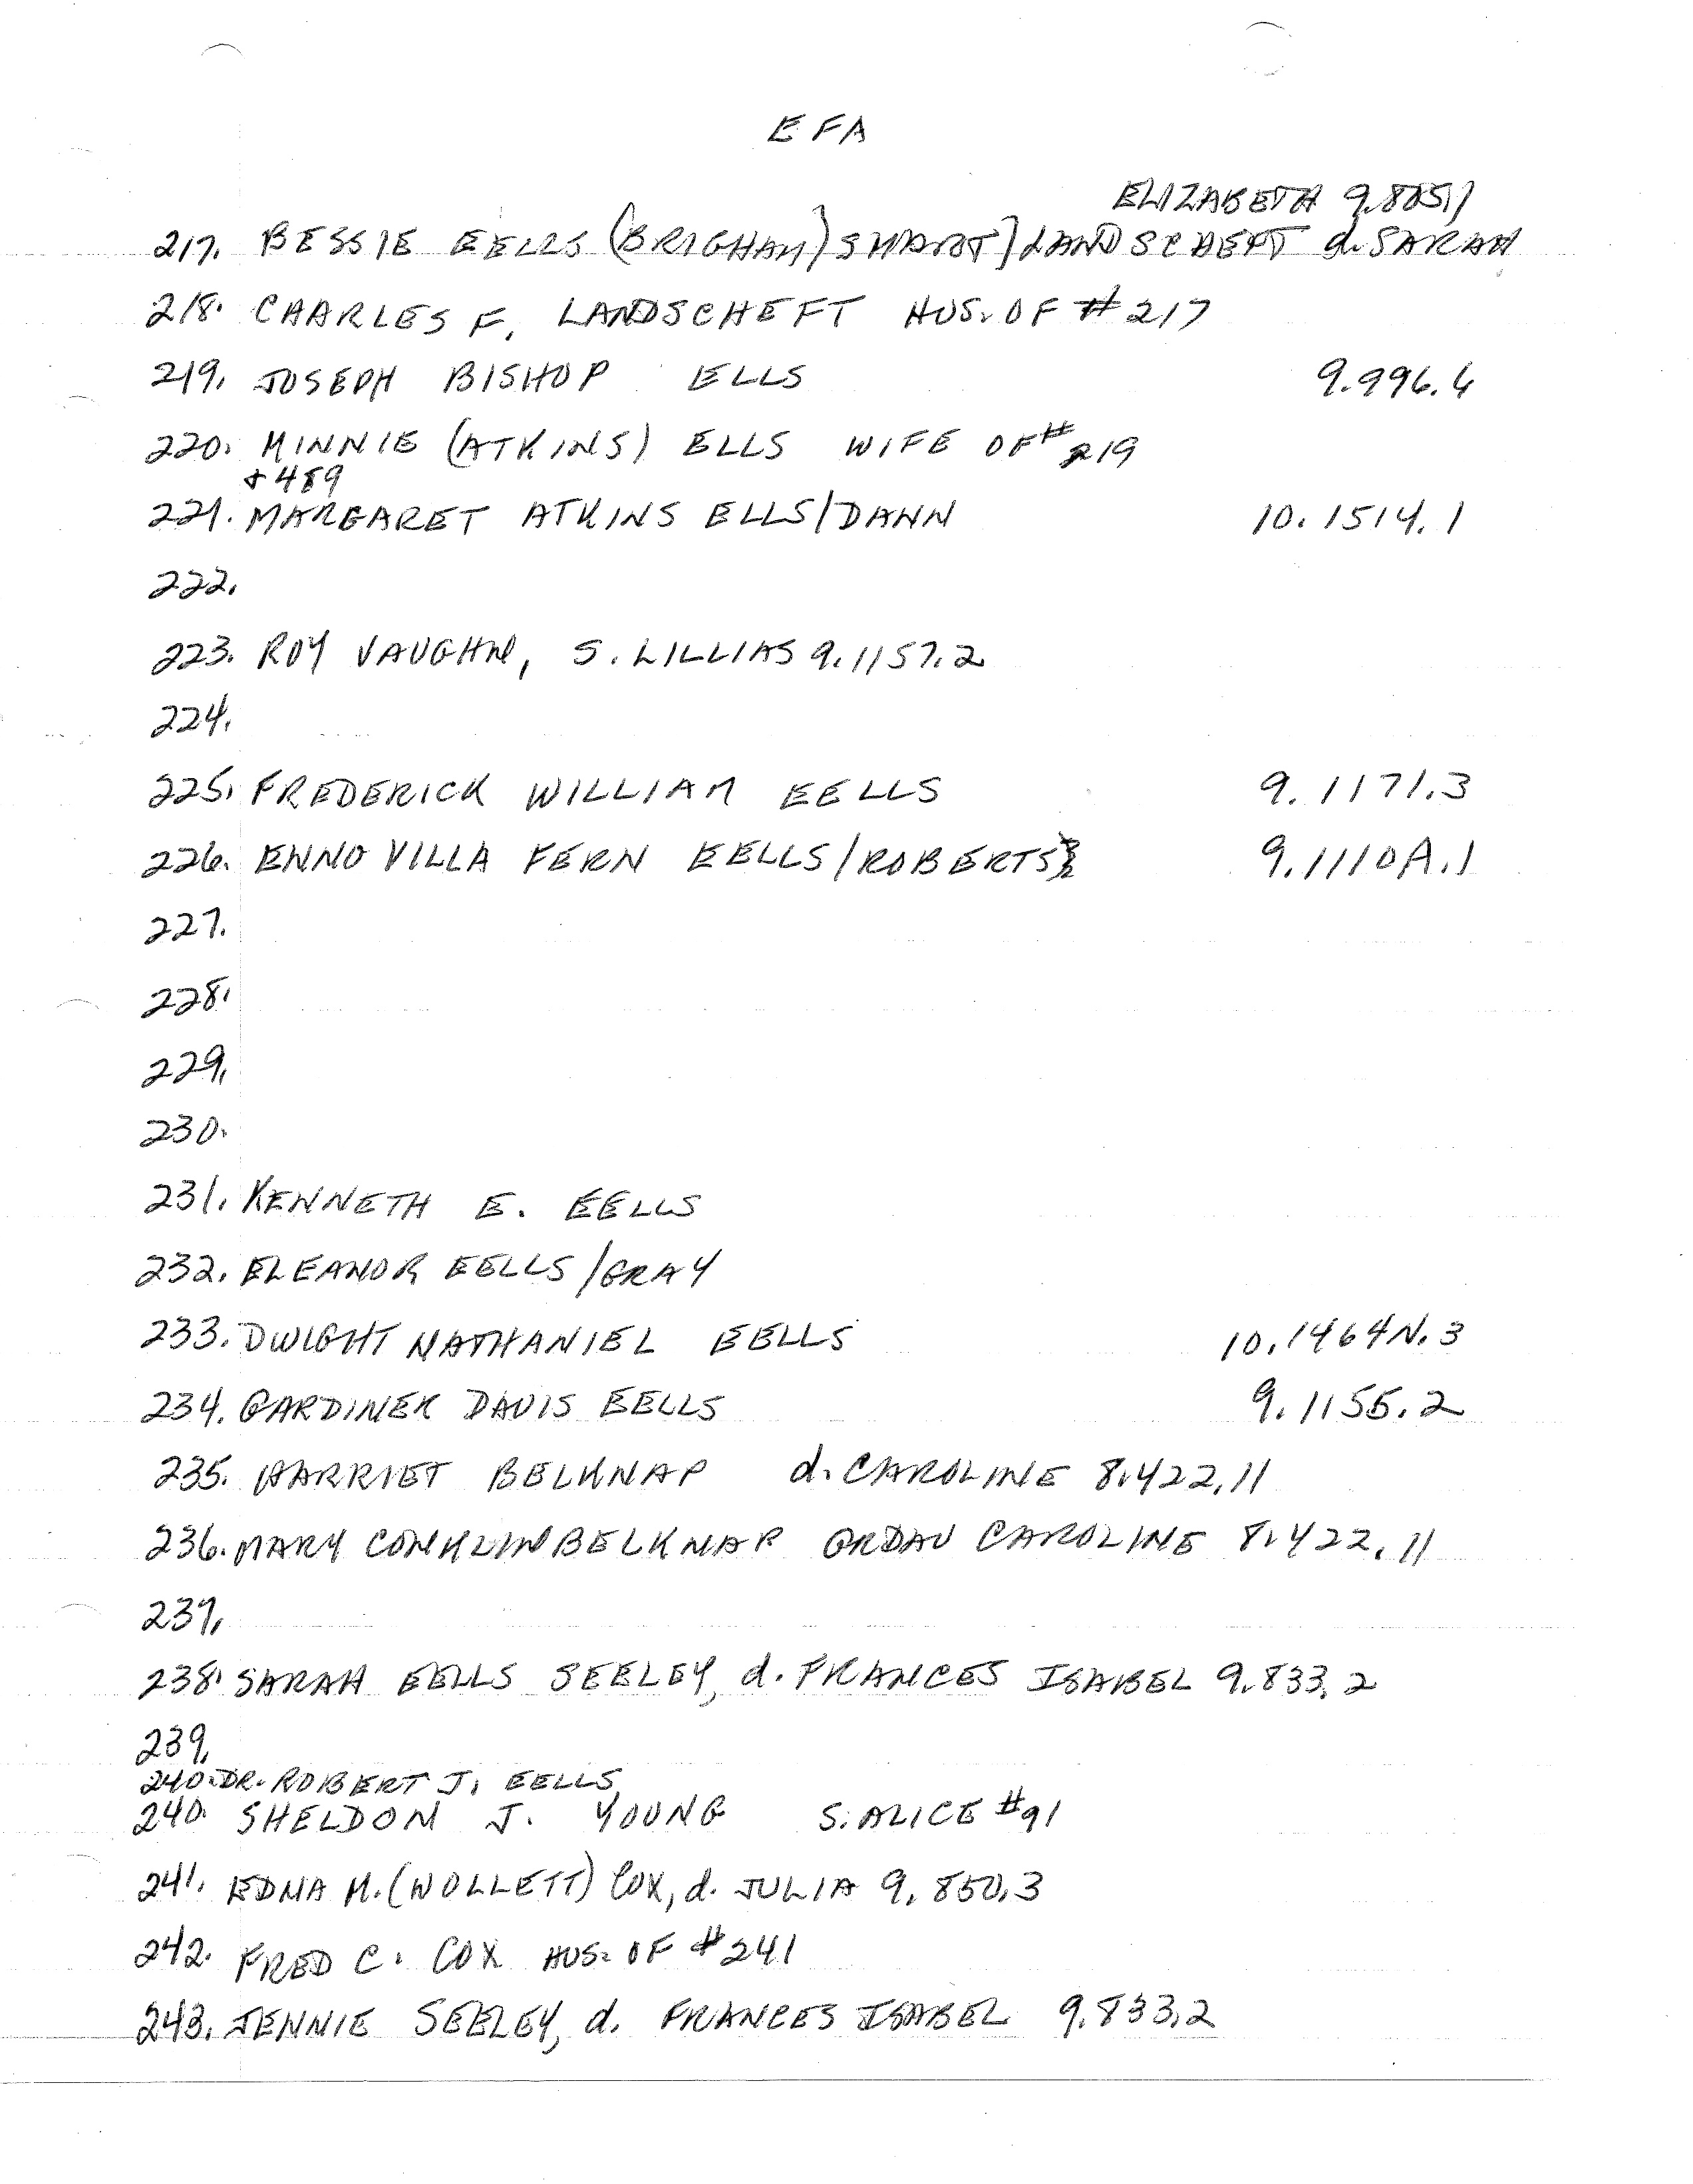 EFA
ELIZABETH 9.805.1
217. BESSIE EELLS (BRIGHAM) SMART] LANDSCHEFT d. SARAH
218. CHARLES F. LANDSCHEFT HUS. OF #217
219. JOSEPH BISHOP ELLS 9.996.6
220. MINNIE (ATKINS) ELLS WIFE OF # 219
+489
221. MARGARET ATKINS ELLS/DANN 10.1514.1
222.
223. ROY VAUGHN, S. LILLIAS 9.1157.2
224.
225. FREDERICK WILLIAM EELLS 9.1171.3
226. ENNO VILLA FERN EELLS/ROBERTS 9.1110A.1
227.
228.
229.
230.
231. KENNETH E. EELLS
232. ELEANOR EELLS/GRAY
233. DWIGHT NATHANIEL EELLS 10.1464N.3
234. GARDINER DAVIS EELLS 9.1155.2
235. HARRIET BELKNAP d. CAROLINE 8.422.11
236. MARY CONKLIN BELKNAP GRDAU CAROLINE 8.422.11
237.
238. SARAH EELLS SEELEY, d. FRANCES ISABEL 9.833.2
239.
240. DR. ROBERT J. EELLS
240. SHELDON J. YOUNG S. ALICE #91
241. EDNA M. (WOLLETT) COX, d. JULIA 9.850.3
242. FRED C. COX HUS. OF #241
243. JENNIE SEELEY, d. FRANCES ISABEL 9.833.2